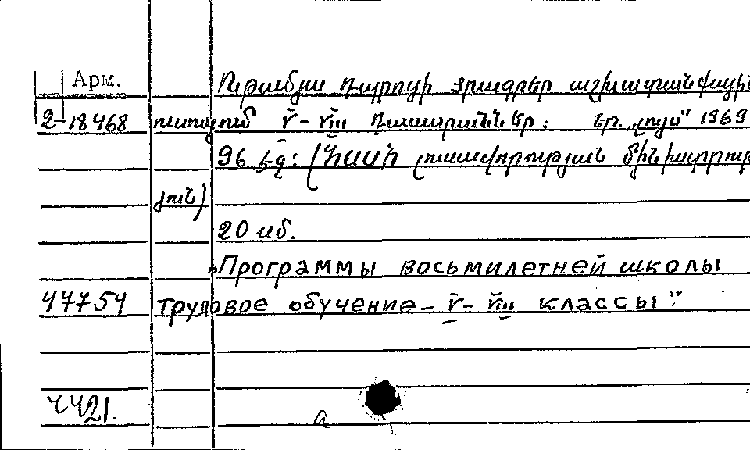 Арм.
Ութամյա դպրոցի ծրագրեր աշխատանքային
2-18468 ուսուցում V-VIII դասարաններ: Եր. „Լույս" 1969
96 էջ: (ՀՍՍՀ լուսավորության մինիստրու
յուն)
20 սմ.
„Программы восьмилетней школы
47754 трудовое обучение – V-VIII классы"